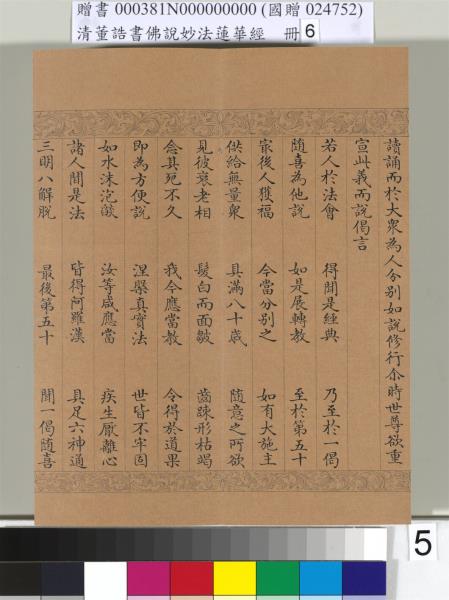 贈書 000381N000000000 (國贈 024752)
清董誥書佛說妙法蓮華經 冊 6
讀誦而於大衆為人分別如說修行尒時世尊欲重
宣此義而說偈言
若人於法會 得聞是經典 乃至於一偈
随喜為他說 如是展轉教 至於第五十
冣後人獲福 今當分別之 如有大施主
供給無量衆 具滿八十歳 随意之所欲
見彼衰老相 髮白而面皺 齒踈形枯竭
念其死不久 我今應當教 令得於道果
即為方便說 涅槃真實法 世皆不牢固
如水沫泡燄 汝等咸應當 疾生厭離心
諸人聞是法 皆得阿羅漢 具足六神通
三明八解脫 最後第五十 聞一偈随喜
5